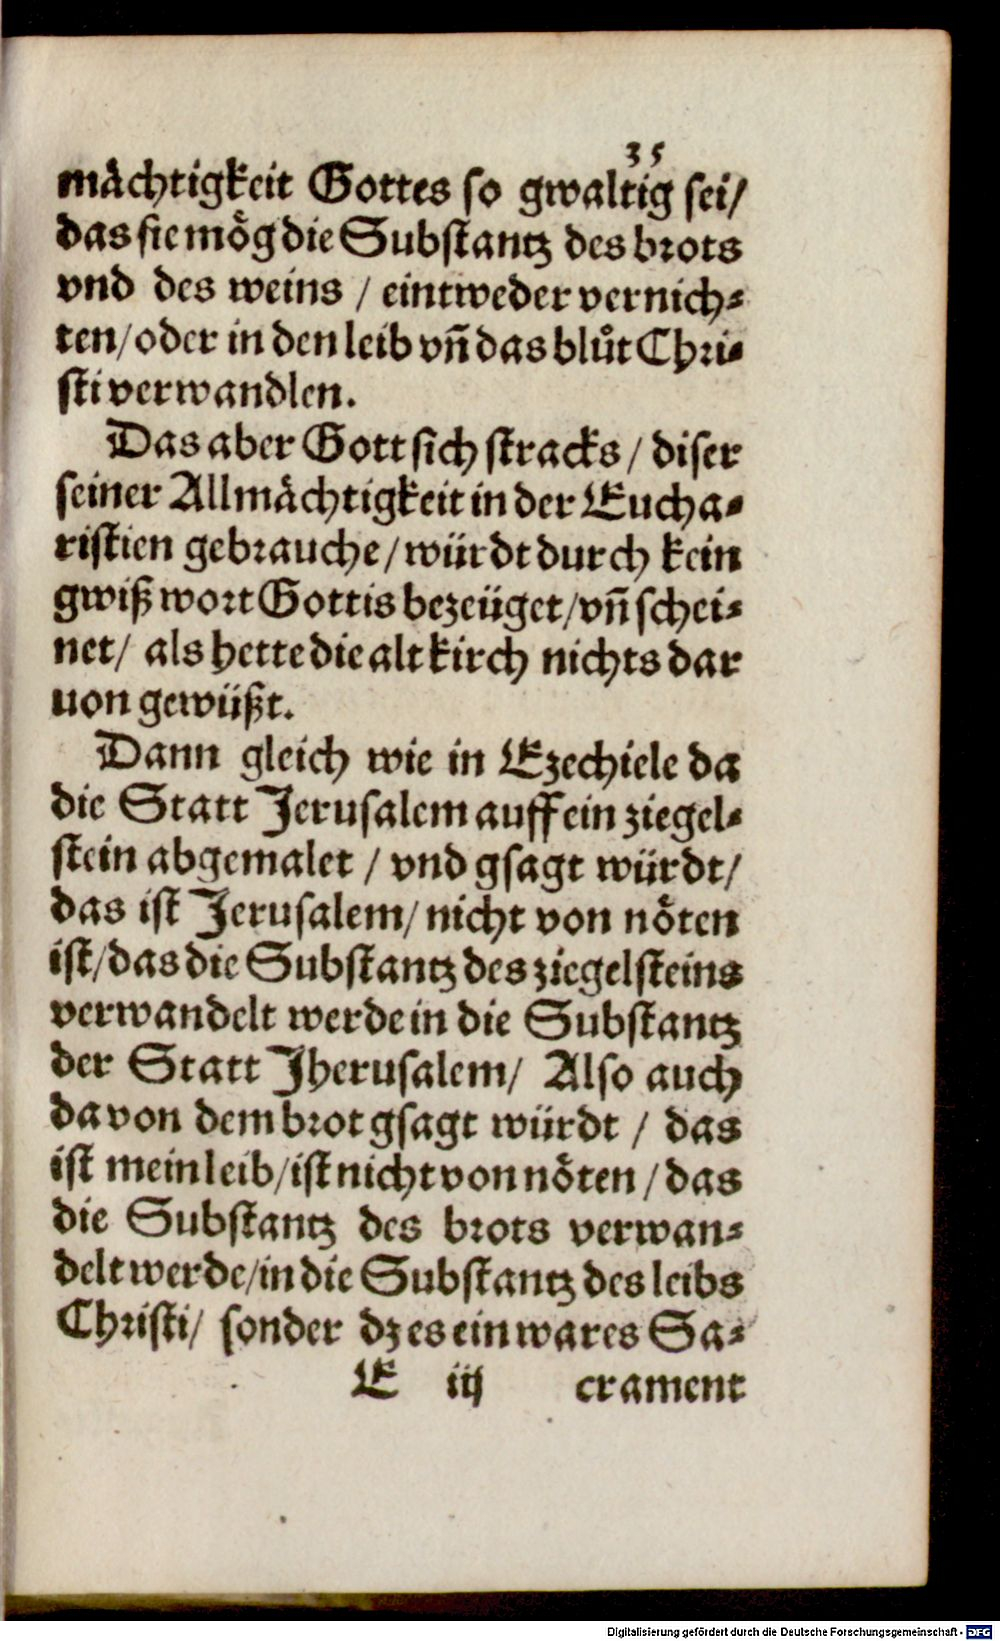 35
mächtigkeit Gottes so gwaltig sei/
das sie mög die Substantz des brots
vnd des weins / eintweder vernich⸗
ten/ oder in den leib vñ das blůt Chri⸗
sti verwandlen.
Das aber Gott sich stracks / diser
seiner Allmächtigkeit in der Eucha⸗
ristien gebrauche / würdt durch kein
gwiß wort Gottis bezeüget/ vñ schei⸗
net/ als hette die alt kirch nichts dar
uon gewüßt.
Dann gleich wie in Ezechiele da
die Statt Jerusalem auff ein ziegel⸗
stein abgemalet / vnd gsagt würdt/
das ist Jerusalem/ nicht von nöten
ist/ das die Substantz des ziegelsteins
verwandelt werde in die Substantz
der Statt Jherusalem/ Also auch
da von dem brot gsagt würdt / das
ist mein leib/ ist nicht von nöten / das
die Substantz des brots verwan⸗
delt werde/ in die Substantz des leibs
Christi/ sonder dz es ein wares Sa⸗
E iij crament
Digitalisierung gefördert durch die Deutsche Forschungsgemeinschaft - DFG